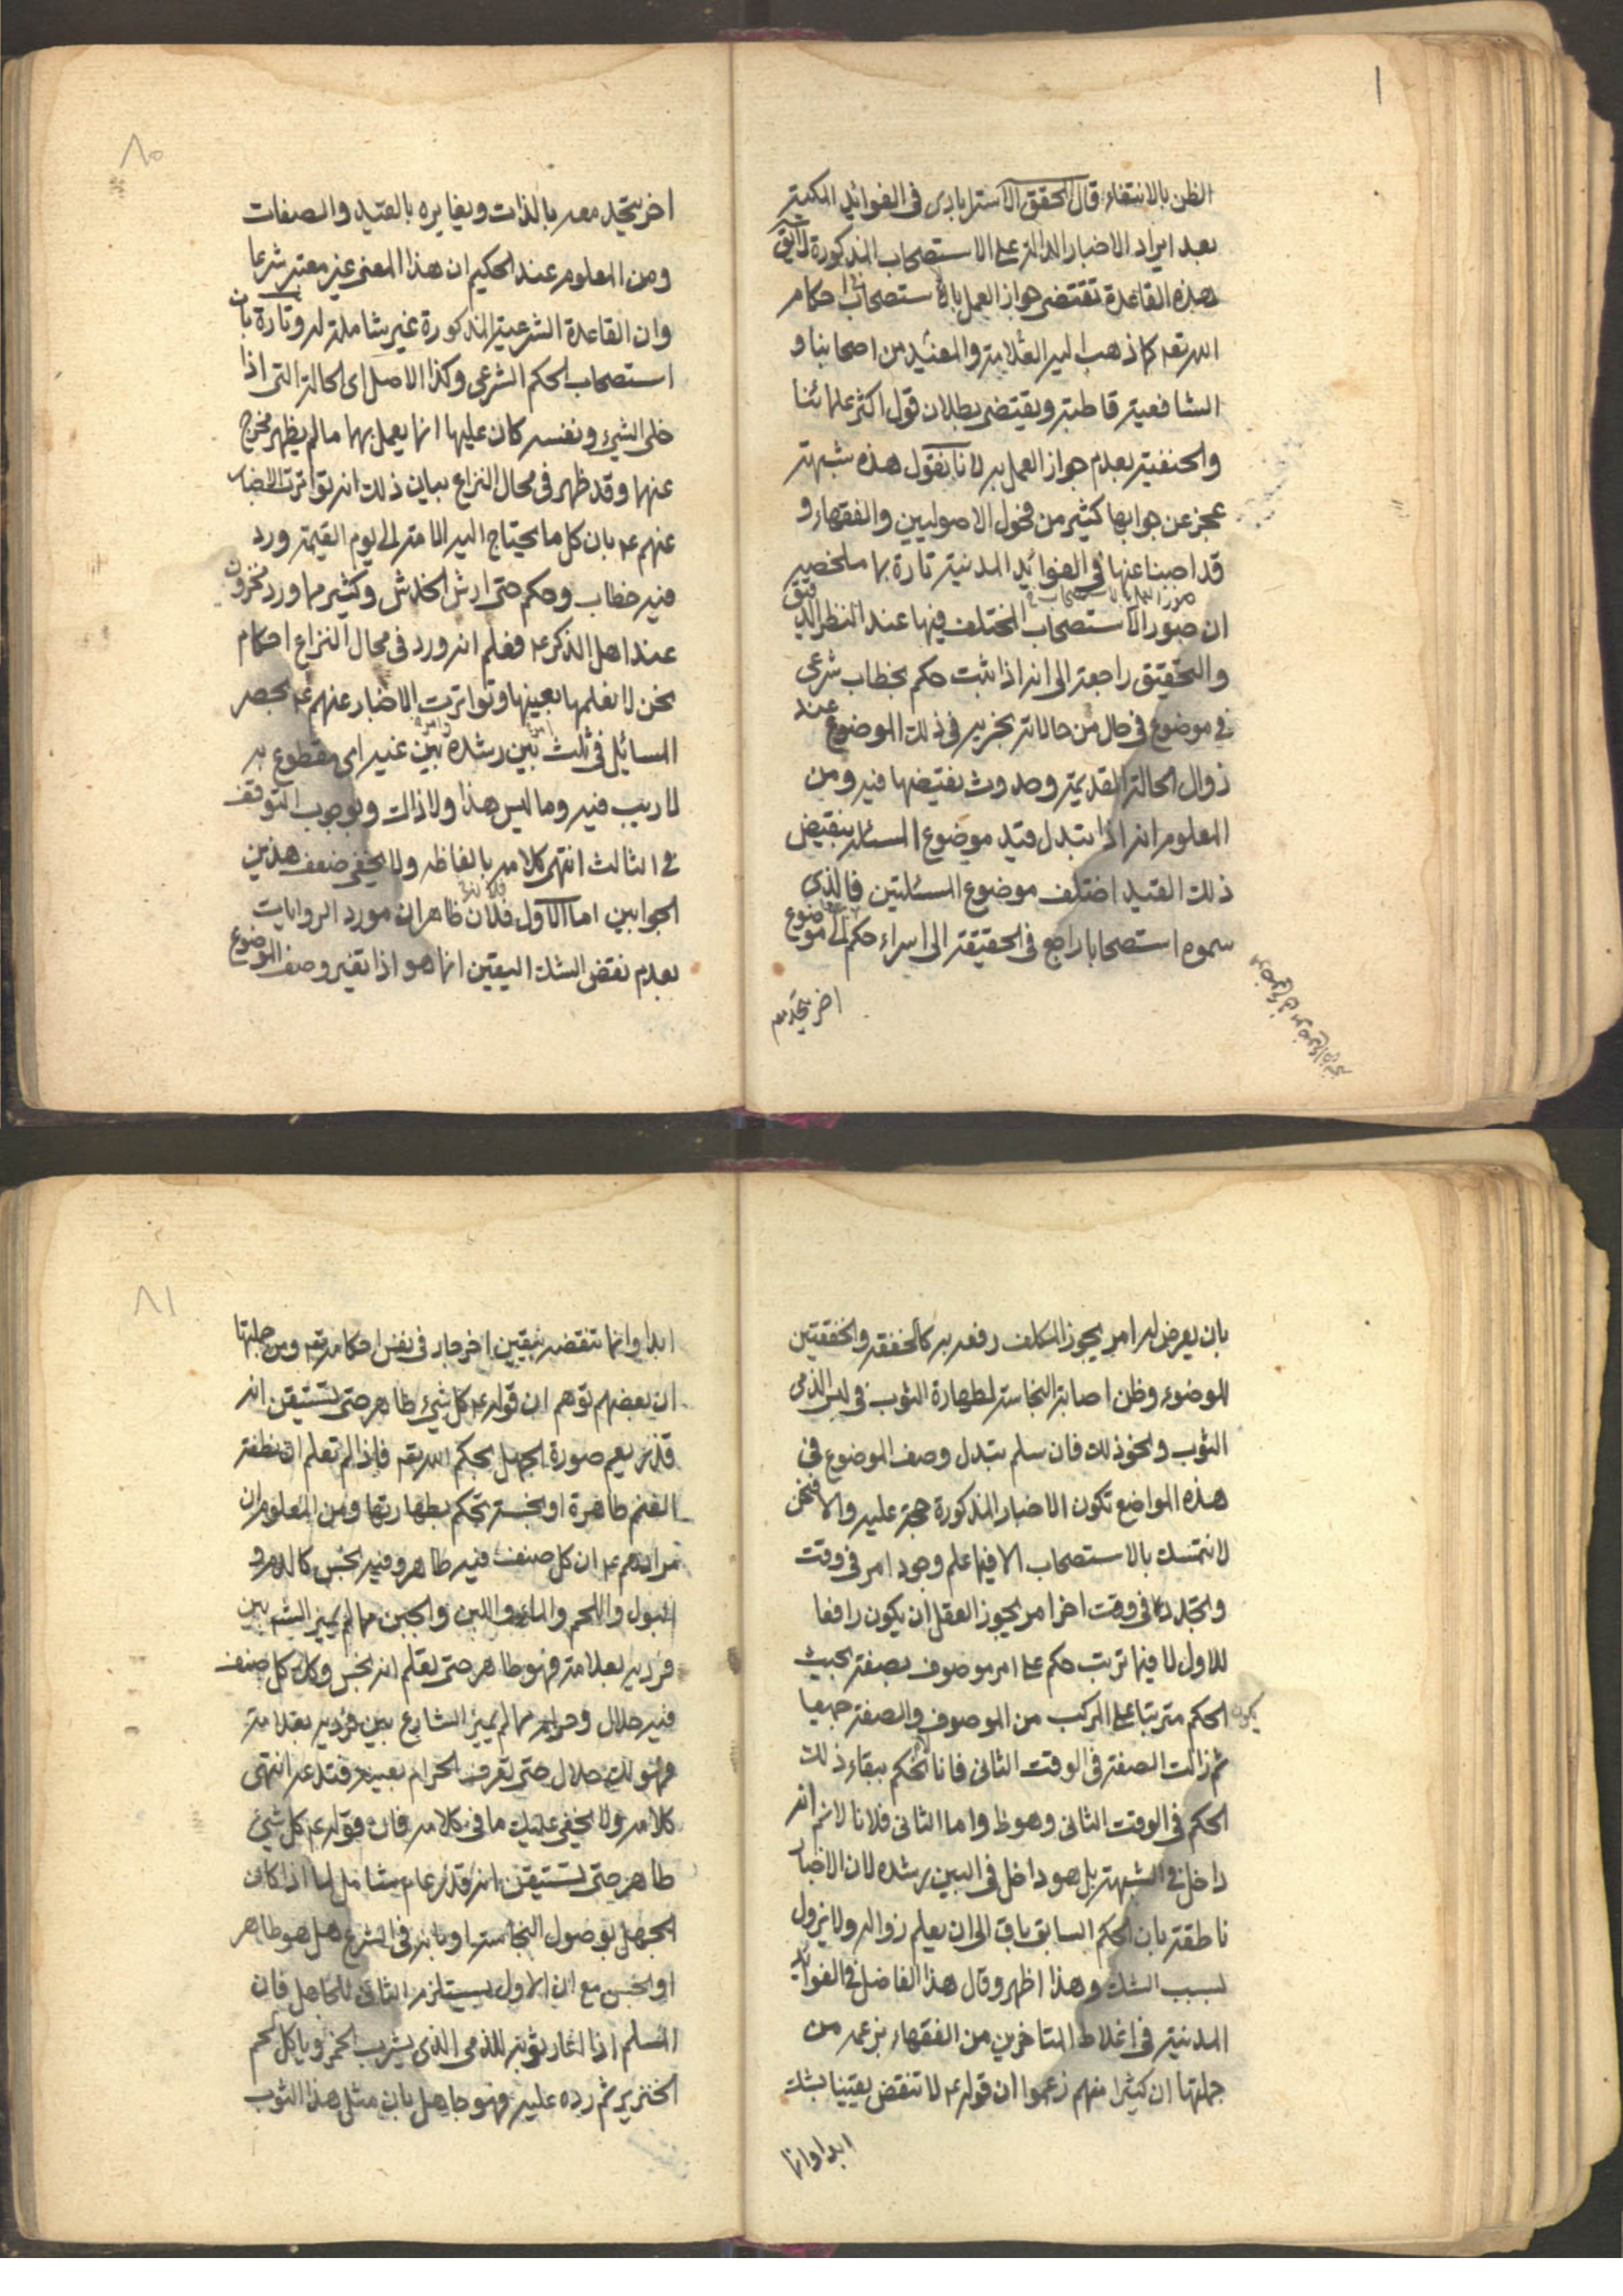 الظن بالانتفاء قال المحقق الاسترابادى فى الفوائد المكية
بعد ايراد الاخبار الدالة على الاستصحاب المذكورة لا يق
هذه القاعدة تقتضى جواز العمل بالاستصحاب احكام
الله تعه كما ذهب اليه العلامة والمفيد من اصحابنا و
الشافعية قاطبة ويقتضى بطلان قول اكثر علمائنا
والحنفية بعدم جواز العمل به لانا نقول هذه شبهة
عجز عن جوابها كثير من فحول الاصوليين والفقهاء و
قد اجبنا عنها فى الفوائد المدنية تارة بما ملخصه
ان صور الاستصحاب المختلف فيها عند النظر الدقيق
والتحقيق راجعة الى انه اذا ثبت حكم بخطاب شرعى
فى موضوع فى حال من حالاته نجريه فى ذلك الموضوع عند
زوال الحالة القديمة وحدوث نقيضها فيه ومن
المعلوم انه اذا تبدل قيد موضوع المسئلة بنقيض
ذلك القيد اختلف موضوع المسئلتين فالذى
سموه استصحابا راجع فى الحقيقة الى اسراء حكم الى موضوع
اخر يتحد معه
٨٠
اخر يتحد معه بالذات ويغايره بالقيد والصفات
ومن المعلوم عند الحكيم ان هذا المعنى غير معتبر شرعا
وان القاعدة الشرعية المذكورة غير شاملة له وتارة بان
استصحاب الحكم الشرعى وكذا الاصل اى الحالة التى اذا
خلى الشىء ونفسه كان عليها انما يعمل بها ما لم يظهر مخرج
عنها وقد ظهر فى محال النزاع بيان ذلك انه تواترت الاخبار
عنهم ع بان كل ما يحتاج اليه الامة الى يوم القيمة ورد
فيه خطاب وحكم حتى ارش الخدش وكثير مما ورد مخزون
عند اهل الذكر ع فعلم انه ورد فى محال النزاع احكام
نحن لا نعلمها بعينها وتواترت الاخبار عنهم ع بحصر
المسائل فى ثلث بين رشده بين غيه اى مقطوع به
لا ريب فيه وما ليس هذا ولا ذاك وبوجوب التوقف
فى الثالث انتهى كلامه بالفاظه ولا يخفى ضعف هذين
الجوابين اما الاول فلان ظاهر ان مورد الروايات
بعدم نقض الشك اليقين انما هو اذا تغير وصف الموضوع
بان يعرض له امر يجوز المكلف رفعه به كالخفقة والخفقتين
للوضوء وظن اصابة النجاسة لطهارة الثوب فى لبس الذمى
الثوب ونحو ذلك فان سلم تبدل وصف الموضوع فى
هذه المواضع تكون الاخبار المذكورة حجة عليه والا فنحن
لا نتمسك بالاستصحاب الا فيما علم وجود امر فى وقت
وتجدد فى وقت اخر امر يجوز العقل ان يكون رافعا
للاول لا فيما ترتب حكم على امر موصوف بصفة بحيث
يكون الحكم مترتبا على المركب من الموصوف والصفة جميعا
ثم زالت الصفة فى الوقت الثانى فانا لا نحكم ببقاء ذلك
الحكم فى الوقت الثانى وهو ظ واما الثانى فلانا لا نم انه
داخل فى الشبهة بل هو داخل فى البين رشده لان الاخبار
ناطقة بان الحكم السابق باق الى ان يعلم زواله ولا يزول
بسبب الشك وهذا اظهر وقال هذا الفاضل فى الفوائد
المدنية فى اغلاط المتاخرين من الفقهاء بزعمه من
جملتها ان كثيرا منهم زعموا ان قوله ع لا تنقض يقينا بشك
ابدا وانما
٨١
ابدا وانما تنقضه بيقين اخر جار فى نفس احكامه تعه ومن جملتها
ان بعضهم توهم ان قوله ع كل شىء طاهر حتى تستيقن انه
قذر يعم صورة الجهل بحكم الله تعه فاذا لم نعلم ان نطفة
الغنم طاهرة او نجسة نحكم بطهارتها ومن المعلوم ان
مرادهم ع ان كل صنف فيه طاهر وفيه نجس كالدم و
البول واللحم والماء واللبن والجبن مما لم يميز الشه بين
فرديه بعلامة فهو طاهر حتى تعلم انه نجس وكك كل صنف
فيه حلال وحرام مما لم يميز الشارع بين فرديه بعلامة
فهو لك حلال حتى تعرف الحرام بعينه فتدعه انتهى
كلامه ولا يخفى عليك ما فى كلامه فان قوله ع كل شىء
طاهر حتى تستيقن انه قذر عام شامل لما اذا كان
الجهل بوصول النجاسة او بانه فى الشرع هل هو طاهر
او نجس مع ان الاول يستلزم الثانى للجاهل فان
المسلم اذا اعار ثوبه للذمى الذى يشرب الخمر وياكل لحم
الخنزير ثم رده عليه فهو جاهل بان مثل هذا الثوب